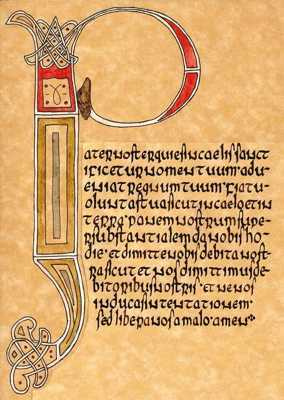 P
aternosterquiesincaelissanct
ificeturnomentuum:adu-
eniatregnumtuum:fiatu-
oluntastuasicutincaeloetin
terra:panemnostrumsupe-
rsubstantialemdanobisho-
die:etdimittenobisdebitanost-
rasicutetnosdimittimusde-
bitoribusnostris:etnenos
inducasintentationem
sedliberanosamalo:amen